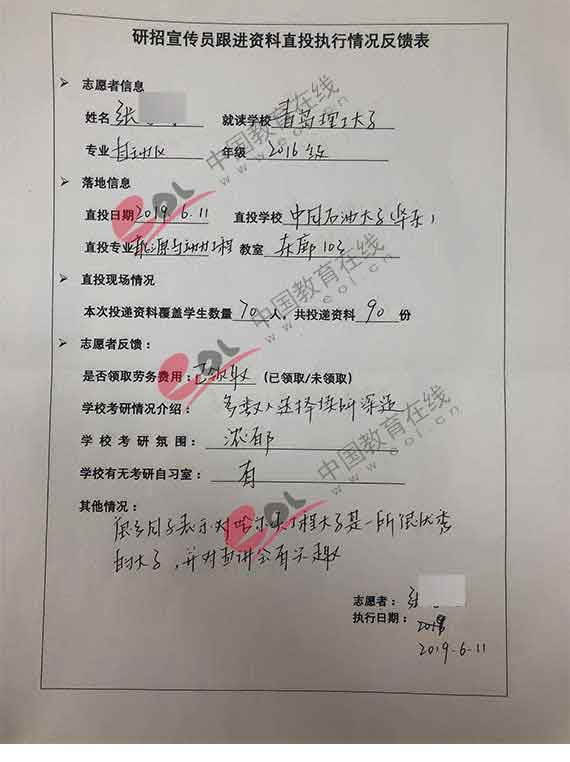 研招宣传员跟进资料直投执行情况反馈表
志愿者信息
姓名 张 就读学校 青岛理工大学
专业 自动化 年级 2016级
落地信息
直投日期 2019.6.11 直投学校 中国石油大学(华东)
直投专业 能源与动力工程 教室 东廊
直投现场情况
本次投递资料覆盖学生数量 70 人，共投递资料 90 份
志愿者反馈：
是否领取劳务费用：已领取 (已领取/未领取)
学校考研情况介绍： 多数人选择读研深造
学校考研氛围： 浓郁
学校有无考研自习室： 有
其他情况：
很多同学表示对哈尔滨工程大学是一所很优秀
的大学，并对宣讲会有兴趣
志愿者： 张
执行日期：
2019-6-11
eol
中国教育在线
www.eol.cn
eol
中国教育在线
www.eol.cn
eol
中国教育在线
www.eol.cn